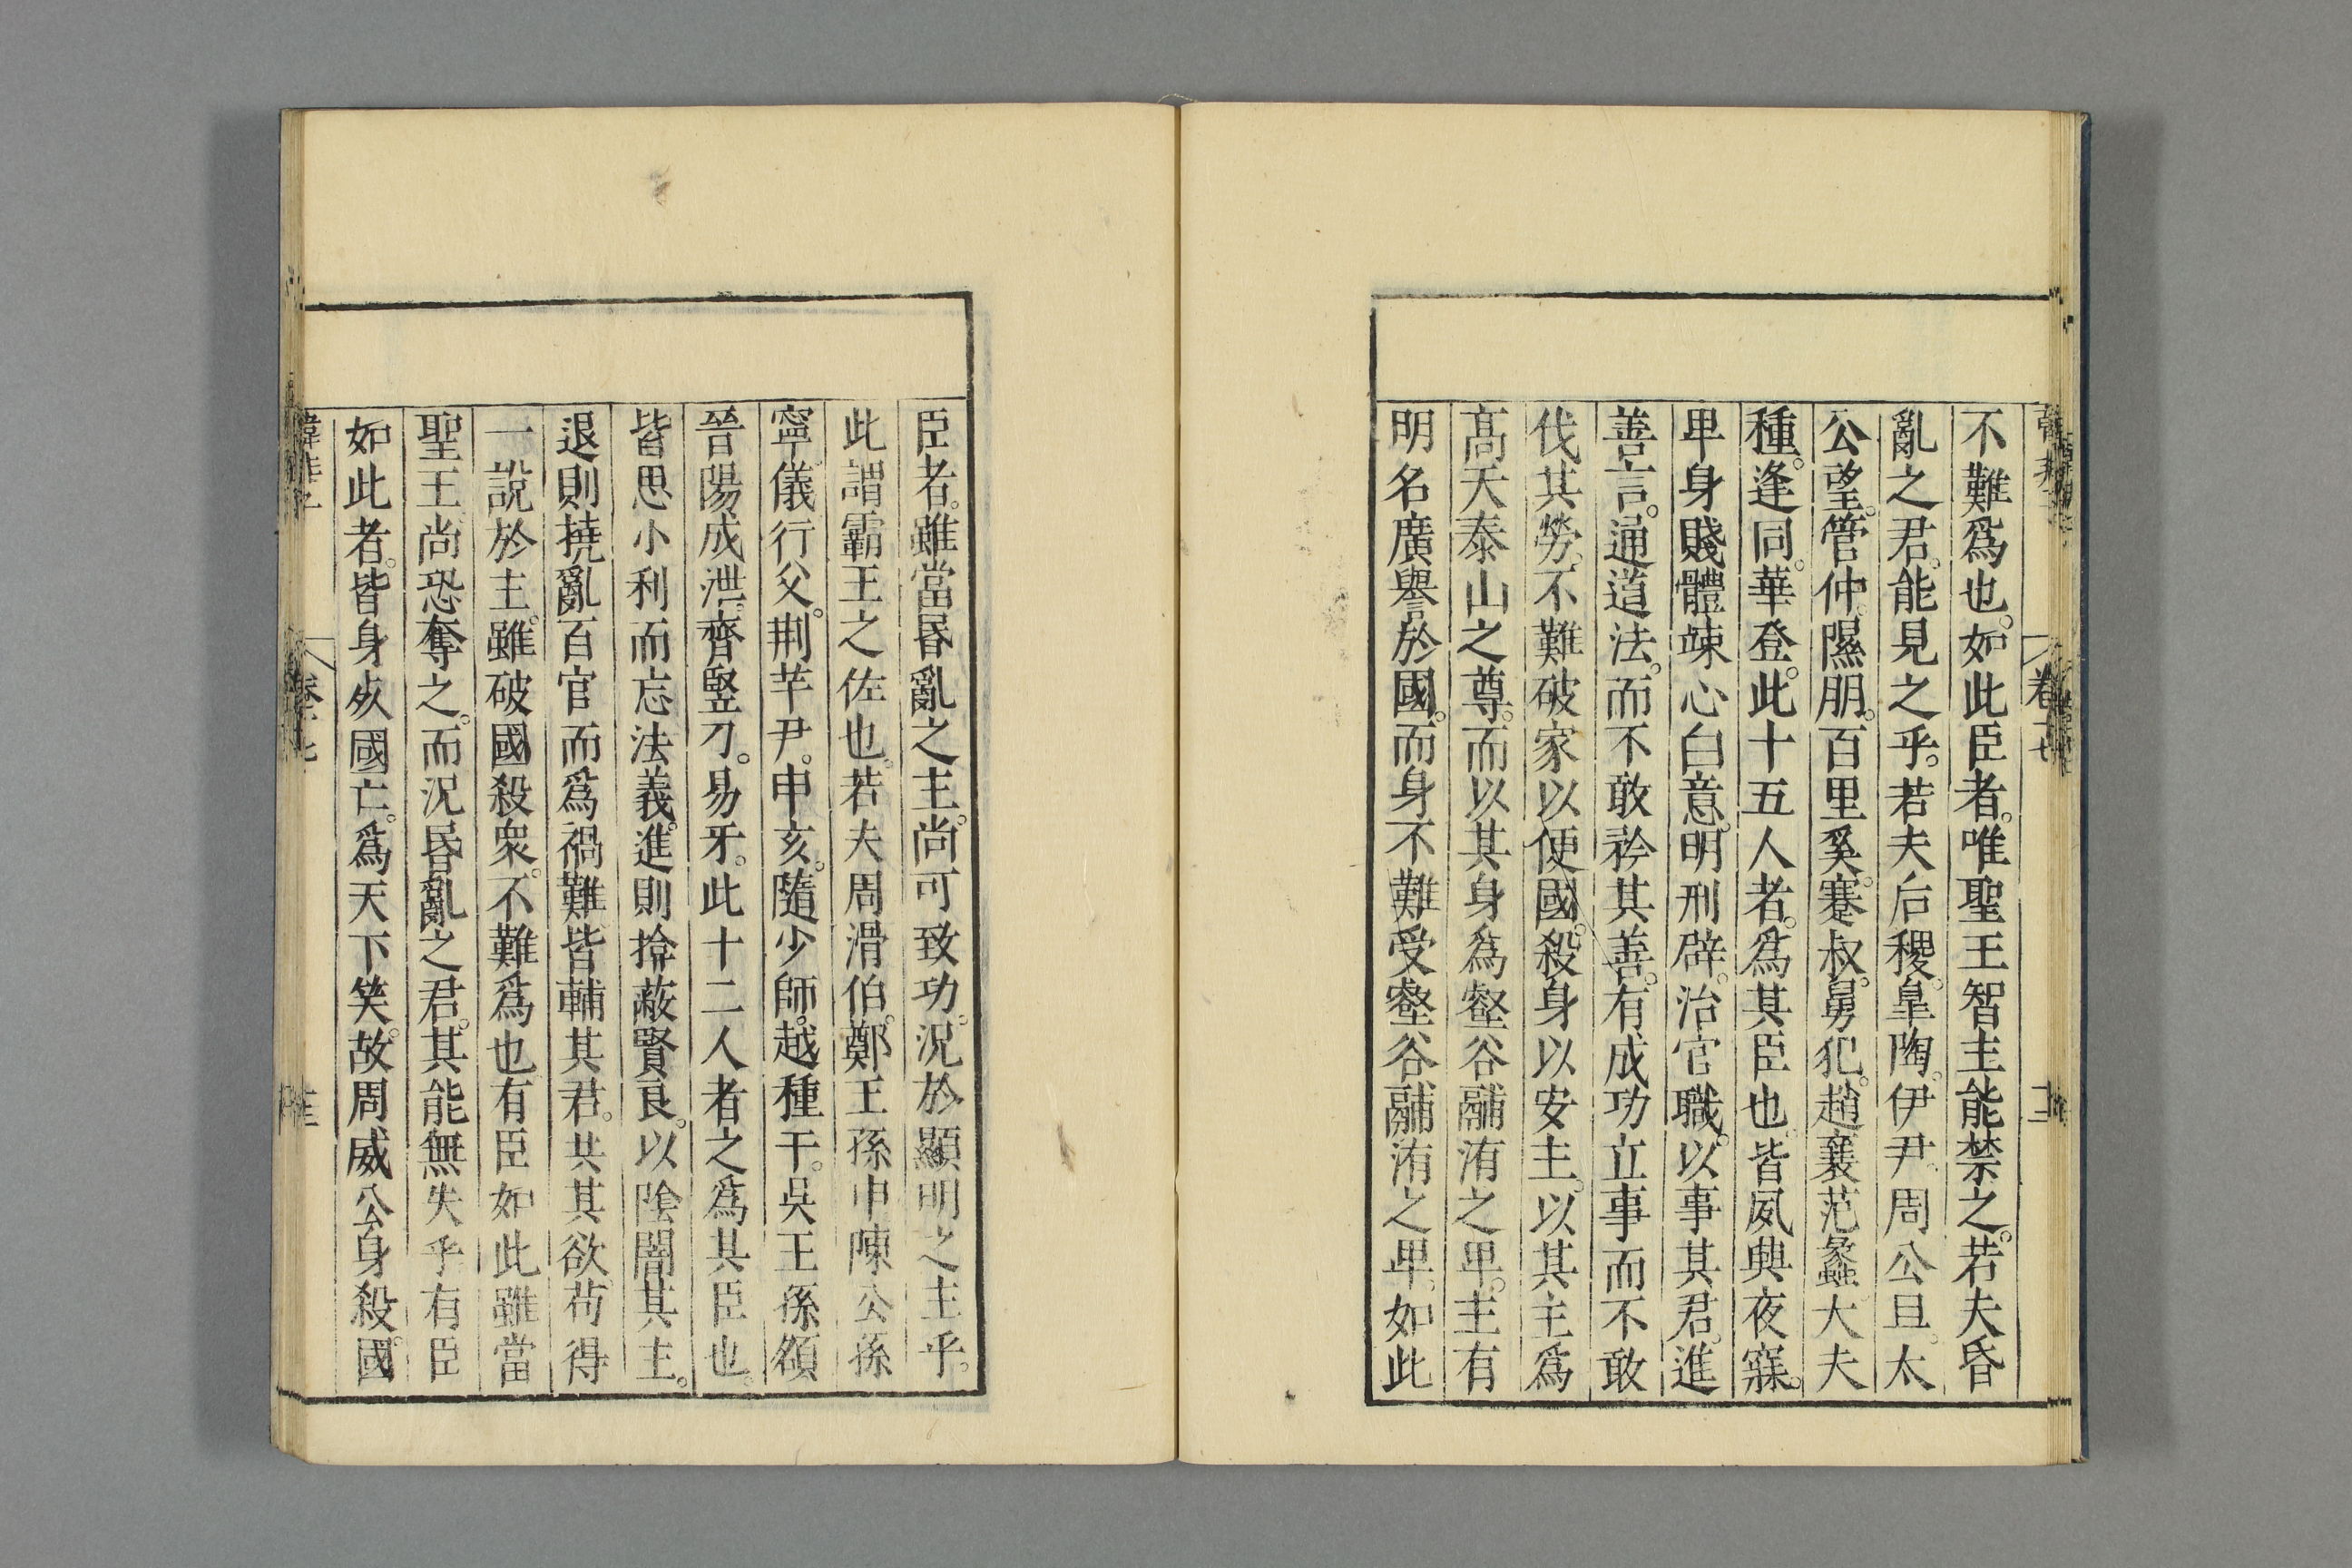 不難爲也。如此臣者。唯聖王智主能禁之。若夫昏
亂之君。能見之乎。若夫后稷。皐陶。伊尹。周公旦。太
公望。管仲。隰朋。百里奚。蹇叔。舅犯。趙襄范蠡大夫
種。逢同。華登。此十五人者。爲其臣也。皆夙興夜寐。
卑身賤體竦心白意。明刑辟。治官職。以事其君。進
善言。通道法。而不敢矜其善。有成功立事而不敢
伐其勞。不難破家以便國。殺身以安主。以其主爲
高天泰山之尊。而以其身爲壑谷鬴洧之卑。主有
明名廣譽於國。而身不難受壑谷鬴洧之卑。如此
臣者。雖當昬亂之主。尚可致功。況於顯明之主乎。
此謂霸王之佐也。若夫周滑伯。鄭王孫申陳公孫
寧儀行父。荆芊尹。申亥。隨少師。越種干。吳王孫頟
晉陽成泄。齊豎刁。易牙。此十二人者之爲其臣也。
皆思小利而忘法義。進則揜蔽賢良。以陰闇其主。
退則撓亂百官而爲禍難。皆輔其君。共其欲。苟得
一說於主。雖破國殺衆。不難爲也。有臣如此雖當
聖王尚恐奪之。而況昬亂之君。其能無失乎有臣
如此者。皆身死國亡。爲天下笑。故周威公身殺。國
韓非子
卷十七